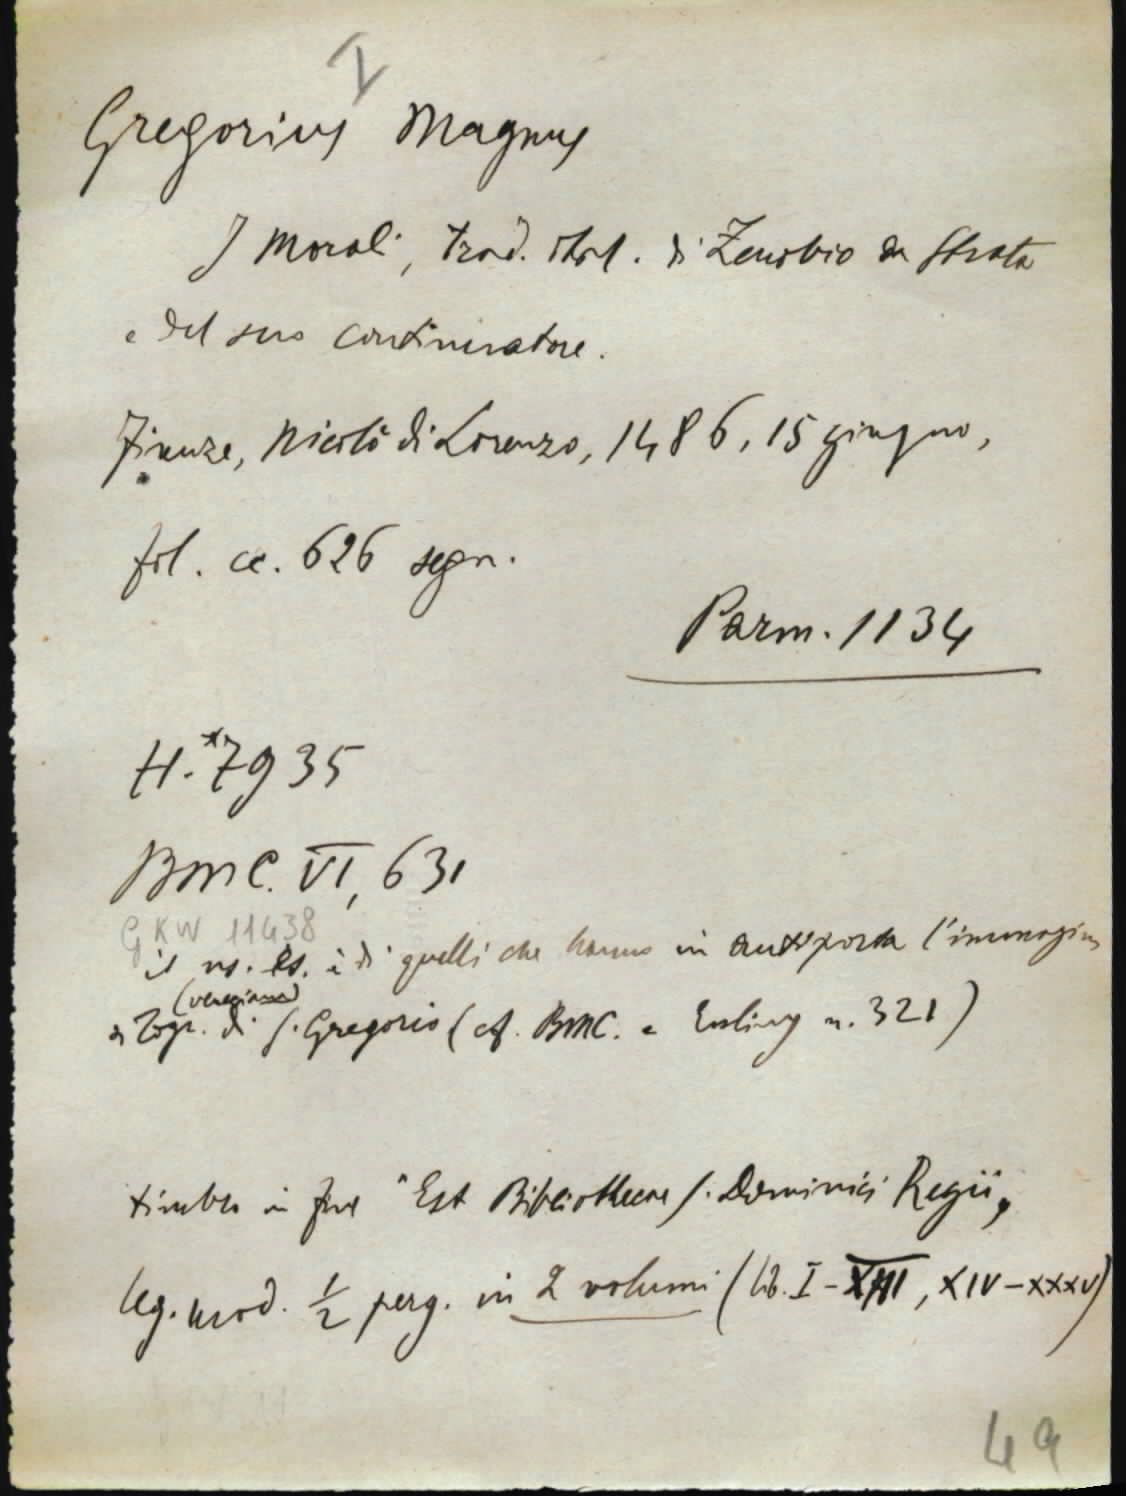 I
Gregorius Magnus
I Morali, trad. ital. di Zenobio da Strata
e del suo continuatore.
Firenze, Nicolò di Lorenzo, 1486, 15 giugno,
fol. cc. 626 segn.
Parm. 1134
H.*7935
BMC. VI, 631
GKW 11438
il ns. es. è di quelli che hanno in antiporta l'immagine
(veneziana)
a Togr. di S. Gregorio (cf. BMC. e Essling n. 321)
timbro in fine "Est Bibliothecae S. Dominici Regii"
leg. mod. ½ perg. in 2 volumi (lib. I-XIII, XIV-XXXV)
49